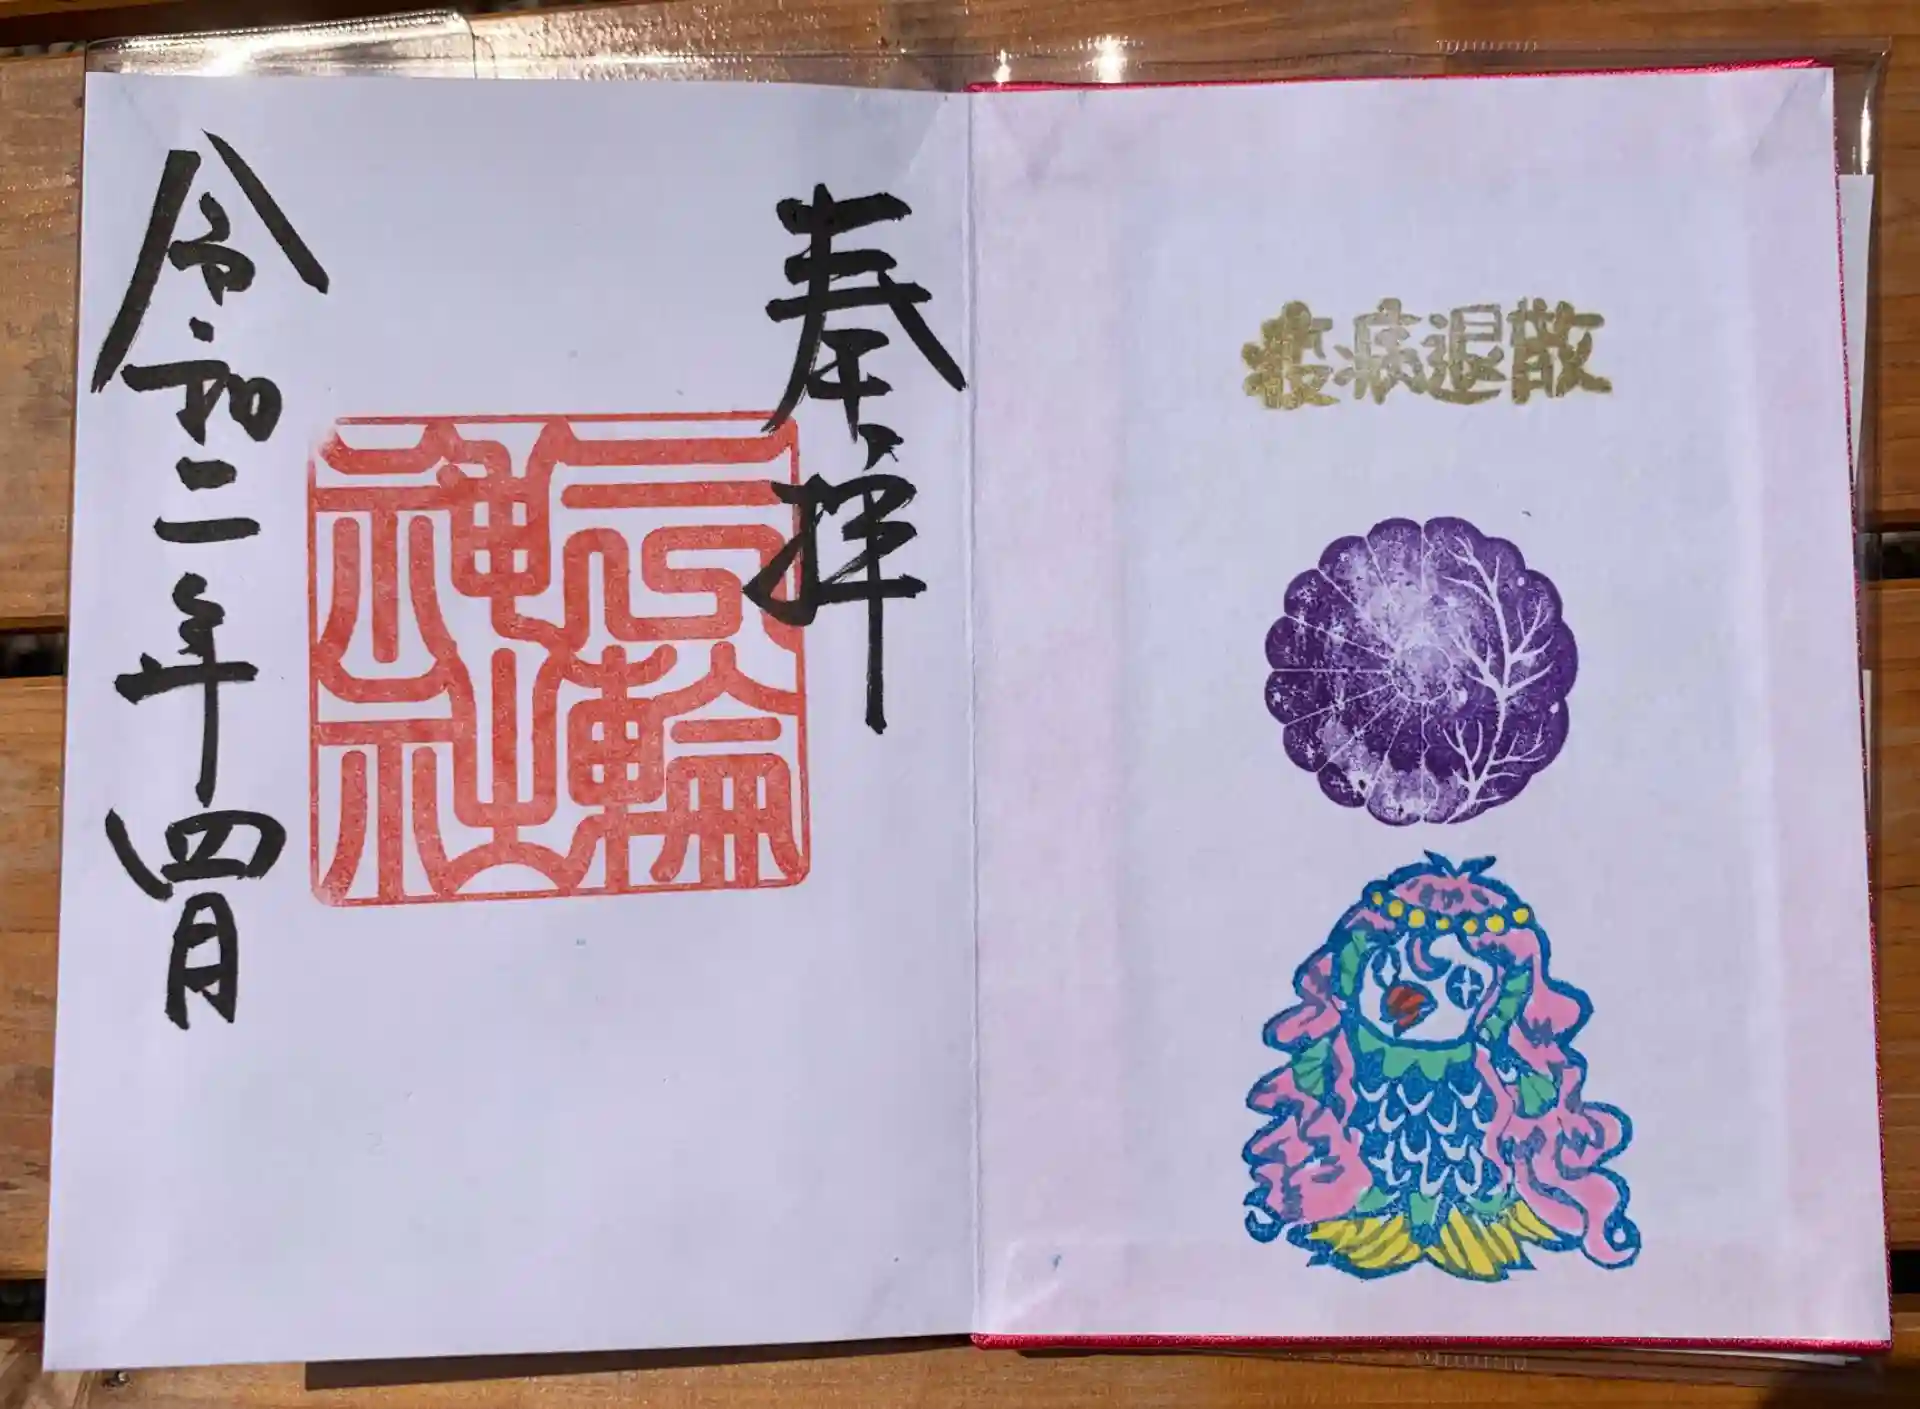 疫病退散
奉拝
三輪神社
令和二年四月